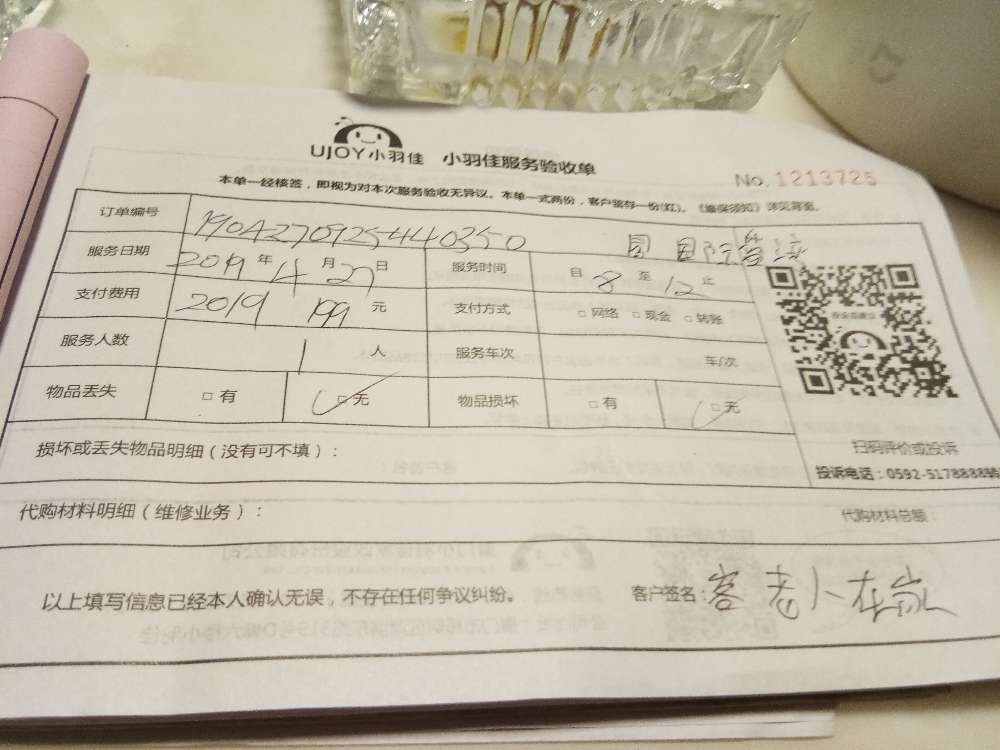 UJOY小羽佳 小羽佳服务验收单
No. 1213725
本单一经核签，即视为对本次服务验收无异议。本单一式两份，客户留存一份(红)。《服务须知》详见背面。
订单编号 190427092544 0350
服务日期 2019年4月27日 服务时间 自8至12止
支付费用 2019 199元 支付方式 □网络 □现金 □转账
服务人数 1人 服务车次 车/次
物品丢失 □有 □无 物品损坏 □有 □无
损坏或丢失物品明细（没有可不填）：
扫码评价或投诉
投诉电话：0592-5178888转
代购材料明细（维修业务）：
代购材料总额：
以上填写信息已经本人确认无误，不存在任何争议纠纷。
客户签名：客 老人在家